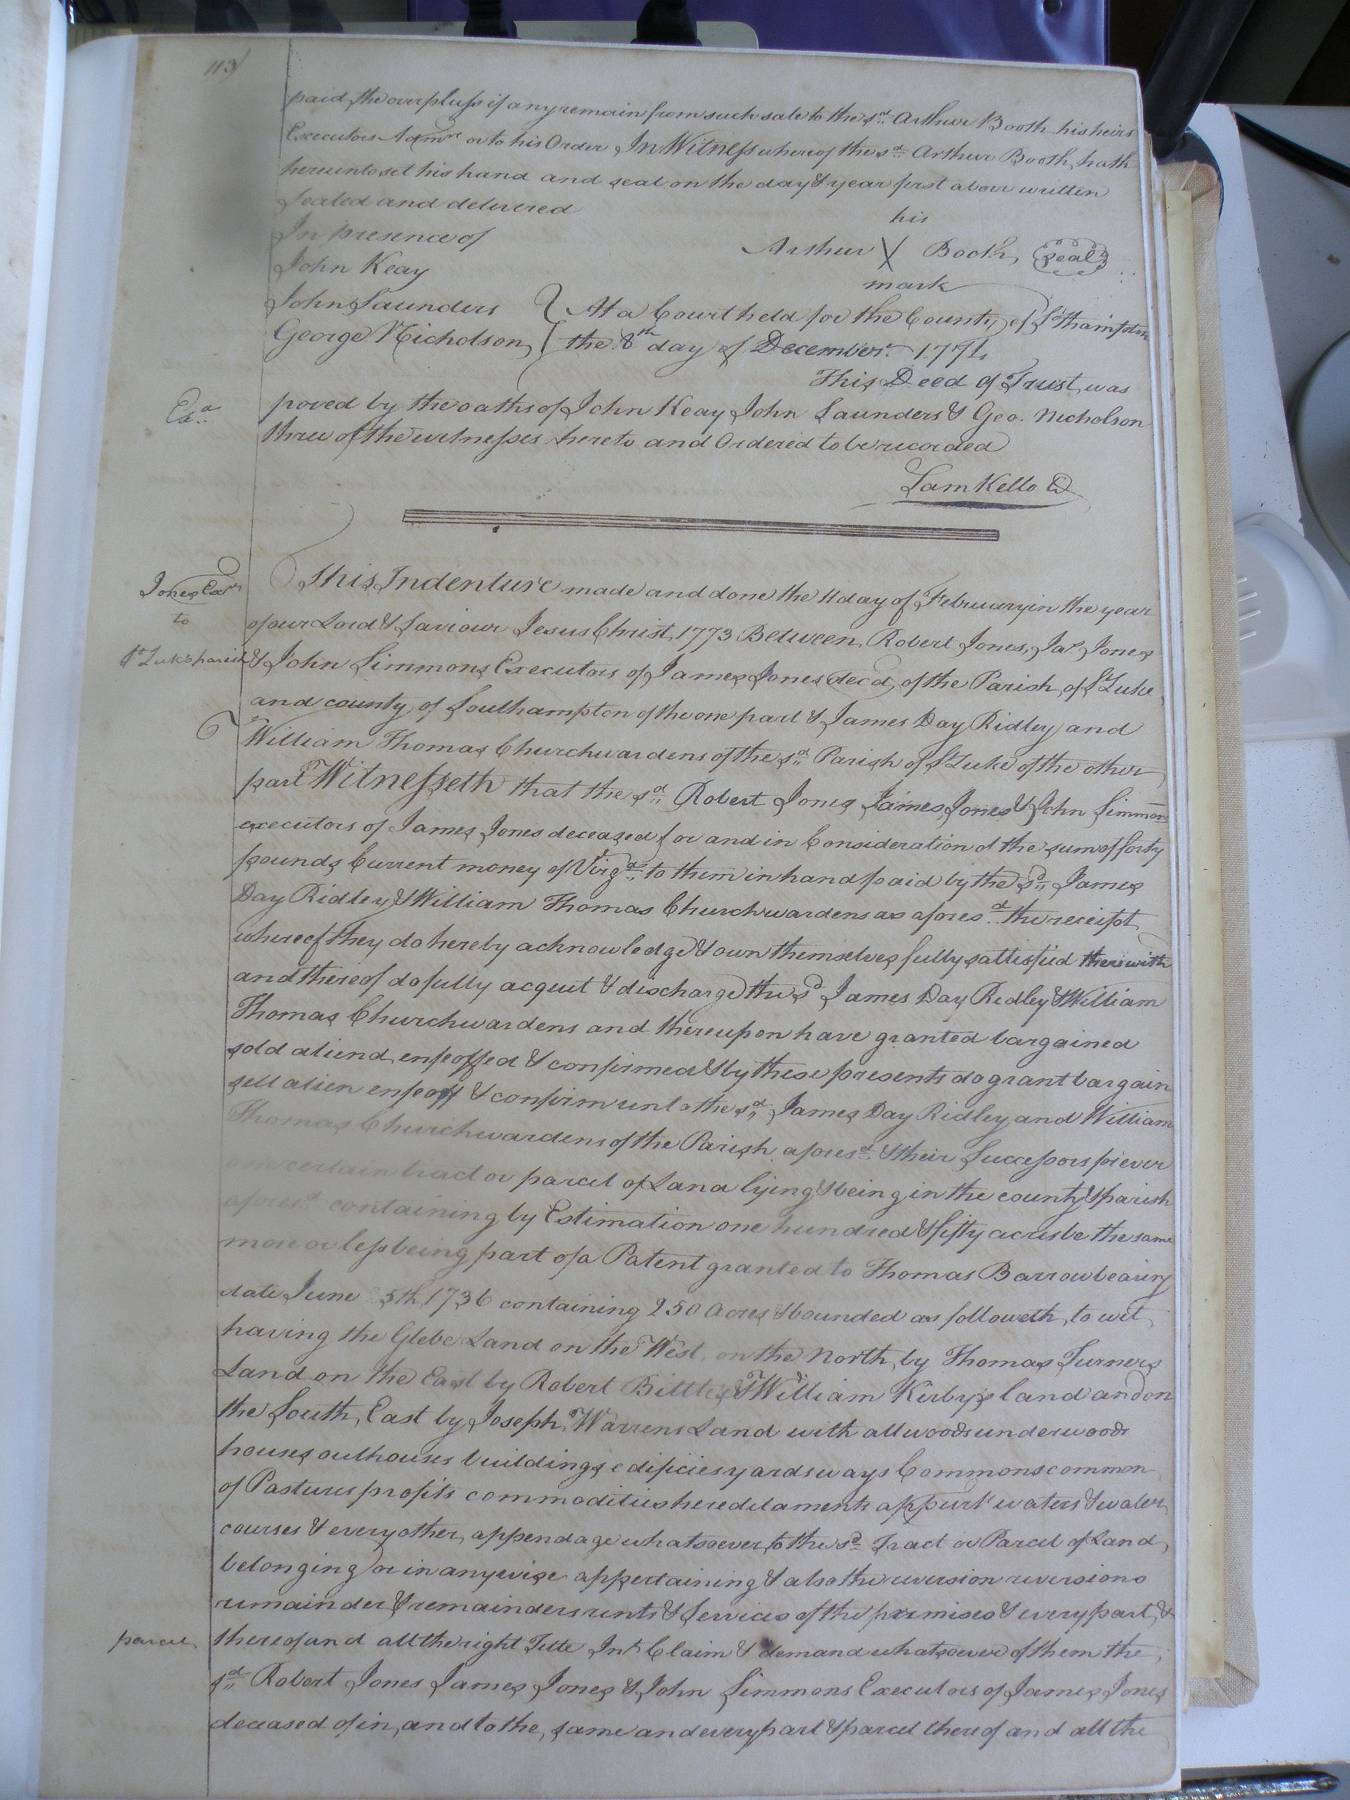 113
paid the overpluss if any remain from such sale to the sd. Arthur Booth his heirs
Executors Admrs or to his Order, In Witness whereof the sd. Arthur Booth, hath
hereunto set his hand and seal on the day & year first above written
Sealed and delivered
In presence of
his
Arthur X Booth, Seal
mark
John Keay
John Saunders
George Nicholson,
At a Court held for the County of S.thampton
the 8th day of December 1774
This Deed of Trust, was
Exd.
poved by the oaths of John Keay John Saunders & Geo. Nicholson
three of the witnesses hereto and Ordered to be recorded
Sam Kello
Jones Exrs
to
St Luke parish
This Indenture made and done the 11 day of February in the year
of our Lord & Saviour Jesus Christ, 1773 Between, Robert Jones, Jas. Jones
& John Simmons Executors of James Jones decd, of the Parish, of St Luke,
and county, of Southampton of the one part & James Day Ridley and
William Thomas Churchwardens of the sd. Parish of St Luke of the other,
part Witnesseth that the sd. Robert Jones James Jones & John Simmons
executors of James Jones deceased for and in Consideration of the sum of forty
pounds Current money of Virga. to them in hand paid by the sd. James
Day Ridley & William Thomas Churchwardens as aforesd. the receipt
whereof they do hereby acknowledge & own themselves fully sattisfied therewith
and thereof do fully acquit & discharge the sd James Day Ridley & William
Thomas Churchwardens and thereupon have granted bargained
sold aliend, enfeoffed & confirmed & by these presents do grant bargain
sell alien enfeoff & confirm unto the sd. James Day Ridley and William
Thomas Churchwardens of the Parish aforesd. & their Successors forever
one certain tract or parcel of Land lying & being in the county & parish
aforesd. containing by Estimation one hundred & fifty acres be the same
more or less being part of a Patent granted to Thomas Barrow bearing
date June 5th, 1736 containing 250 Acres & bounded as followeth, to wit,
having the Glebe Land on the West, on the North, by Thomas Turners
Land on the East by Robert Bittle, & William Kirbys land and on
the South, East by Joseph Warrens Land with all woods underwoods
houses outhouses buildings edificies yards ways Commons common
of Pastures profits commodities hereditaments appurts waters & water
courses & every other, appendage whatsoever, to the sd. Tract or Parcel of Land,
belonging or in anywise appertaining & also the reversion reversions
remainder & remainders rents & services of the premises & every part, &
parcel,
thereof and all the right Title Int. Claim & demand whatsoever of them the,
sd. Robert Jones James Jones & John Simmons Executors of James Jones
deceased of in, and to the, same and every part & parcel thereof and all the